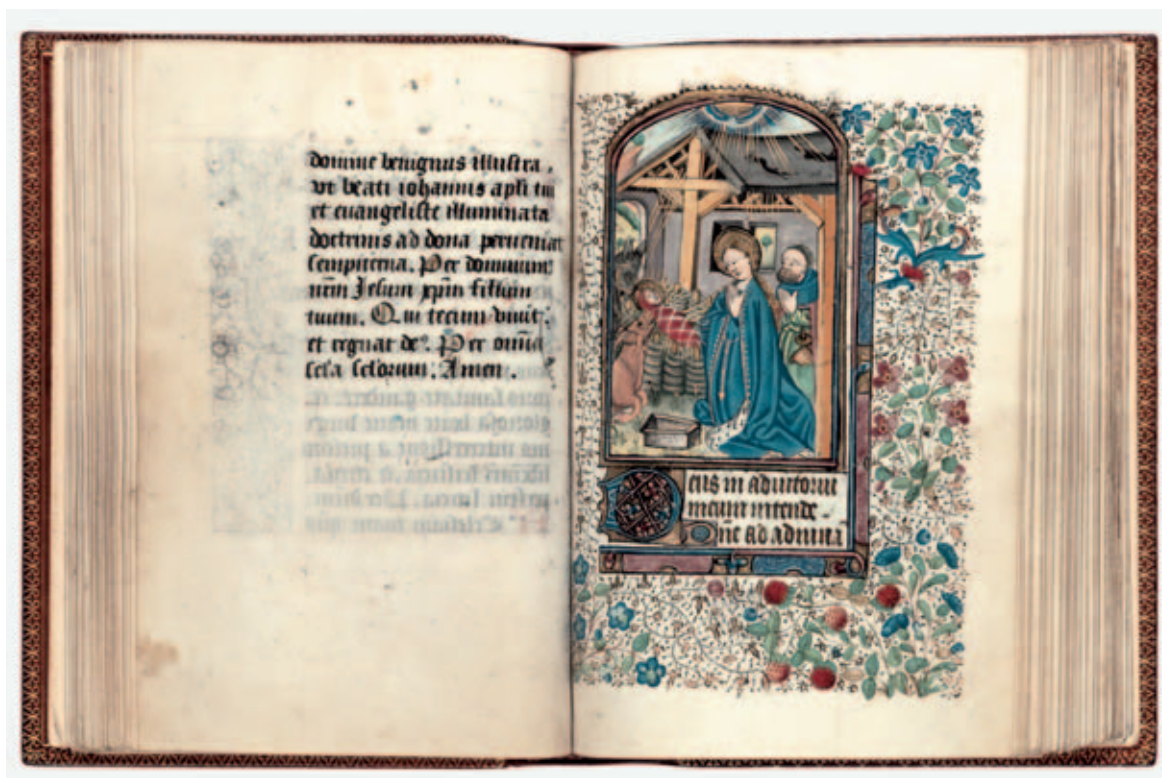 domine benignus illustra.
vt beati iohannis apl̄i tui
et euangeliste illuminata
doctrinis ad dona perueniat
sempiterna. Per dominum
nr̄m Jesum xp̄m filium
tuum. Qui tecum viuit
et regnat de⁹. Per om̄ia
sc̄la sc̄lorum. Amen.
Deus in adiutoriū
meum intende.
Dn̄e ad adiuuā